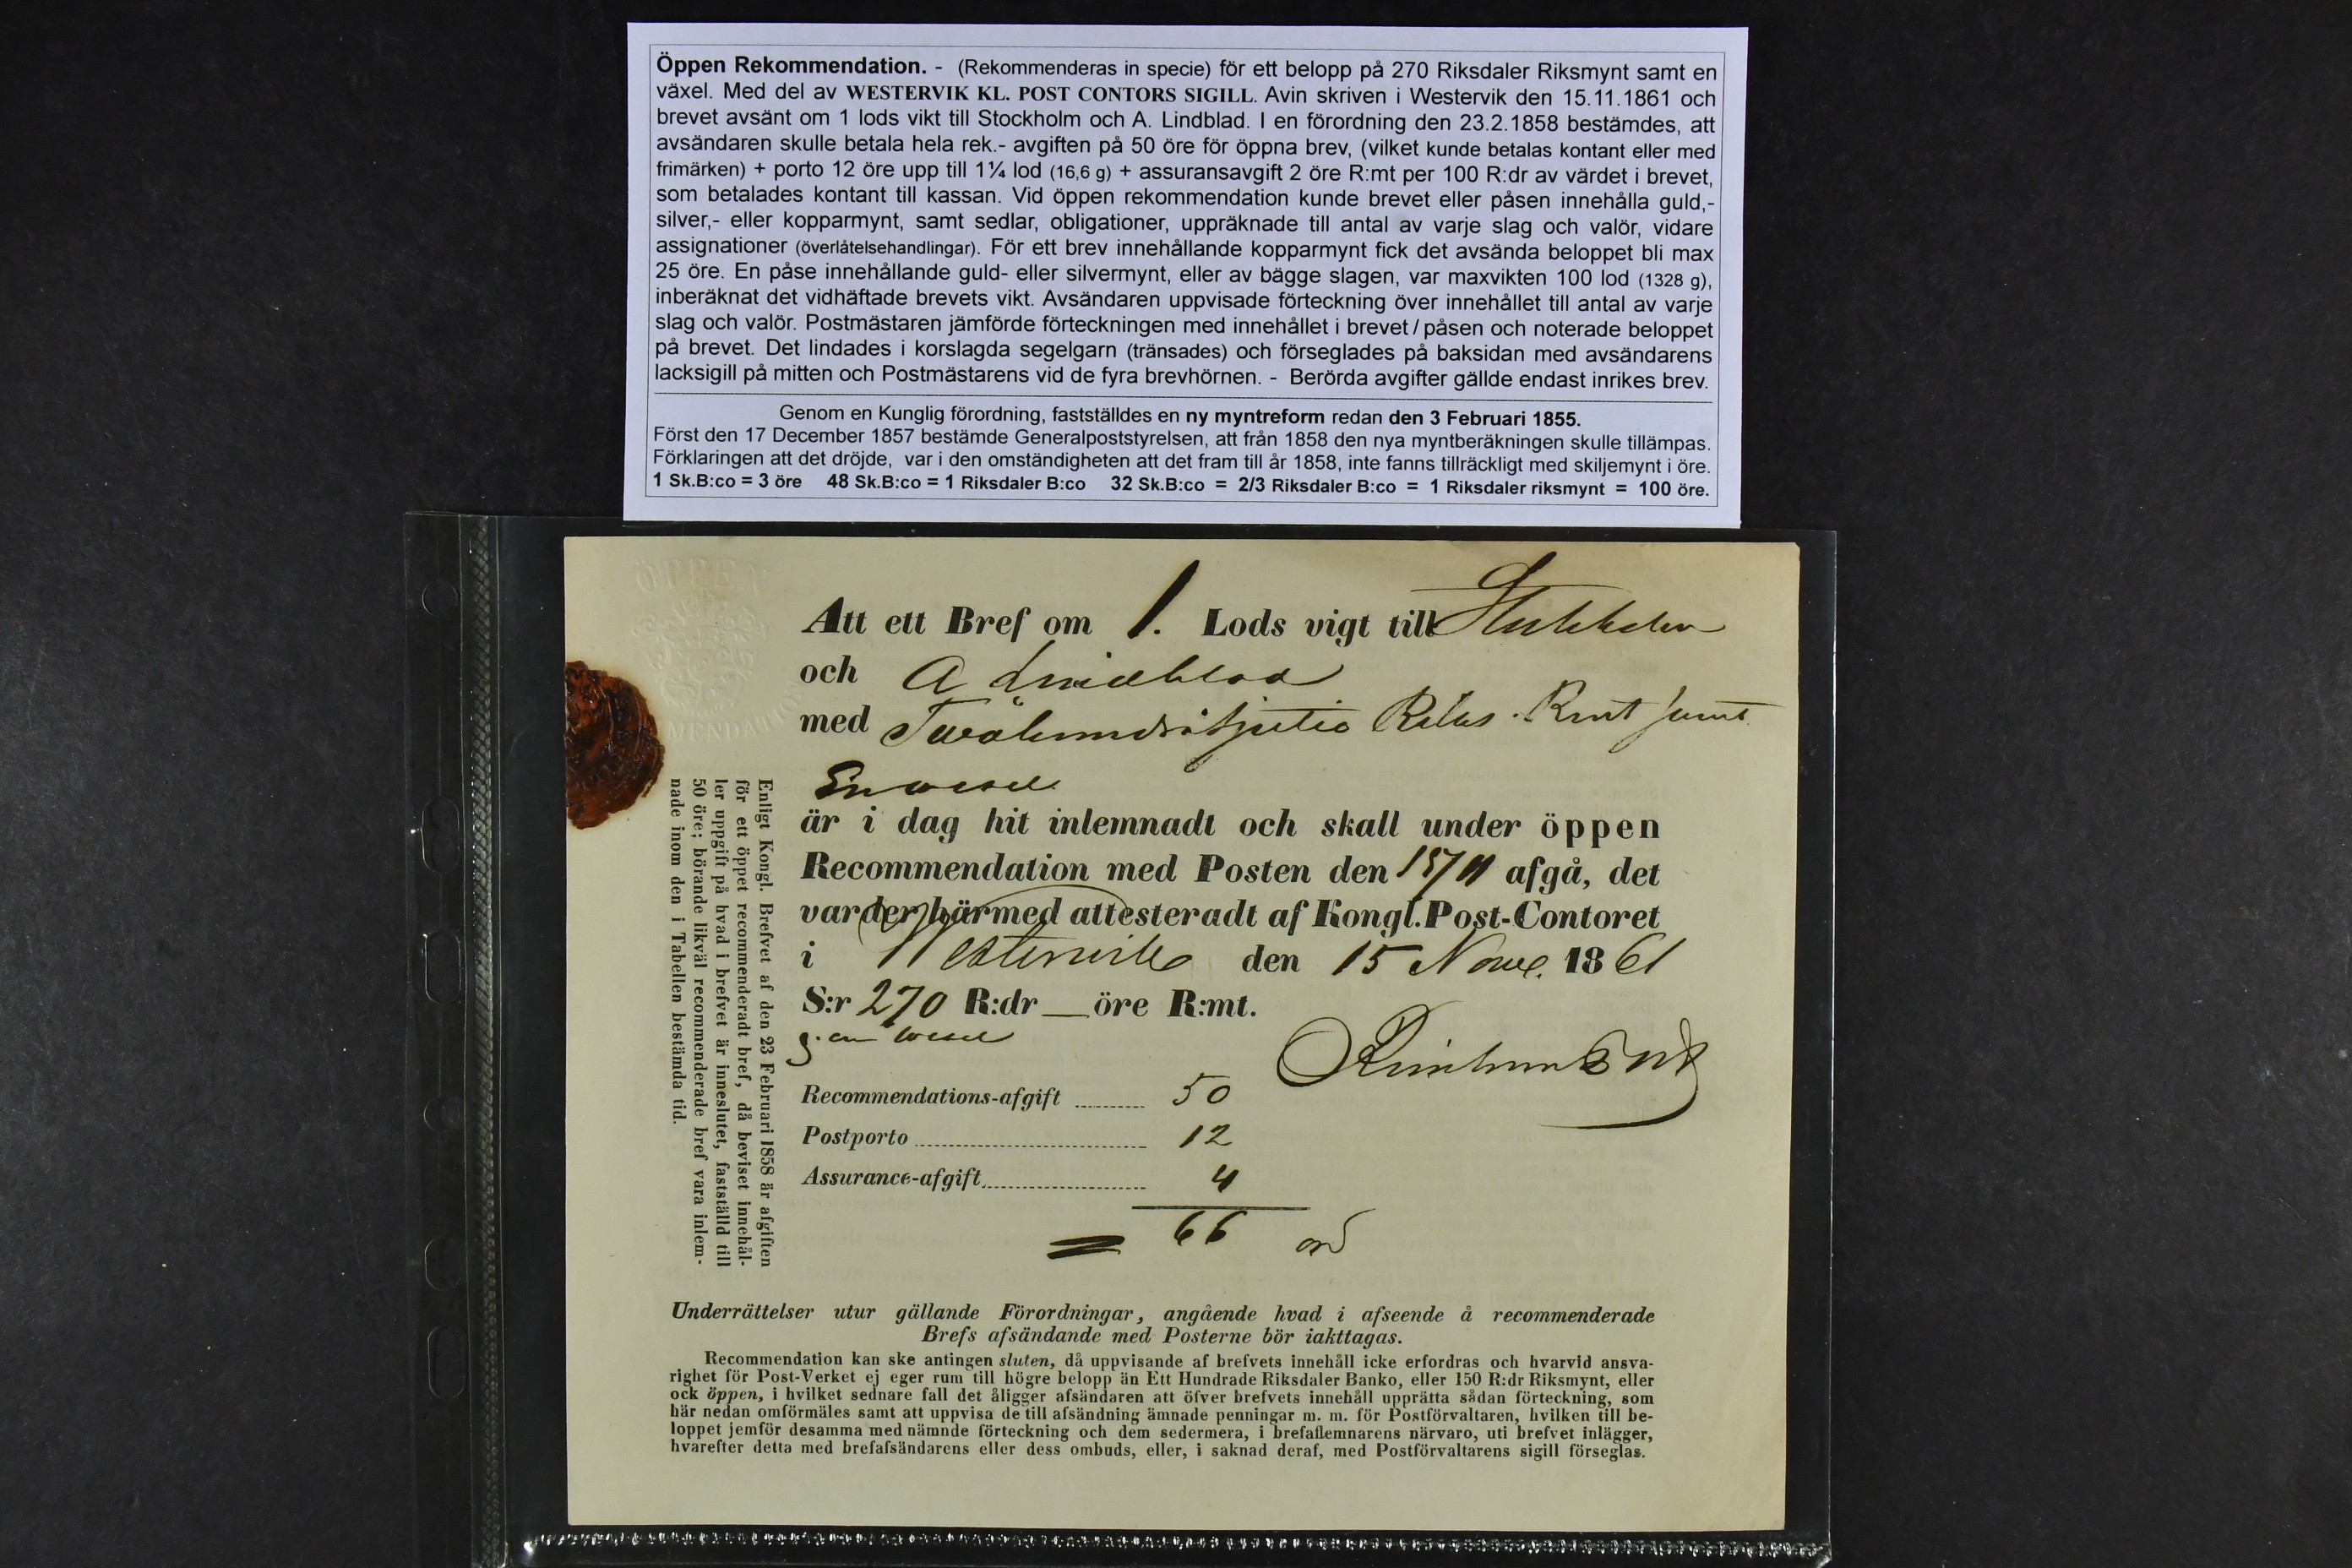 Öppen Rekommendation. - (Rekommenderas in specie) för ett belopp på 270 Riksdaler Riksmynt samt en
växel. Med del av WESTERVIK KL. POST CONTORS SIGILL. Avin skriven i Westervik den 15.11.1861 och
brevet avsänt om 1 lods vikt till Stockholm och A. Lindblad. I en förordning den 23.2.1858 bestämdes, att
avsändaren skulle betala hela rek.- avgiften på 50 öre för öppna brev, (vilket kunde betalas kontant eller med
frimärken) + porto 12 öre upp till 1¼ lod (16,6 g) + assuransavgift 2 öre R:mt per 100 R:dr av värdet i brevet,
som betalades kontant till kassan. Vid öppen rekommendation kunde brevet eller påsen innehålla guld,-
silver,- eller kopparmynt, samt sedlar, obligationer, uppräknade till antal av varje slag och valör, vidare
assignationer (överlåtelsehandlingar). För ett brev innehållande kopparmynt fick det avsända beloppet bli max
25 öre. En påse innehållande guld- eller silvermynt, eller av bägge slagen, var maxvikten 100 lod (1328 g),
inberäknat det vidhäftade brevets vikt. Avsändaren uppvisade förteckning över innehållet till antal av varje
slag och valör. Postmästaren jämförde förteckningen med innehållet i brevet / påsen och noterade beloppet
på brevet. Det lindades i korslagda segelgarn (tränsades) och förseglades på baksidan med avsändarens
lacksigill på mitten och Postmästarens vid de fyra brevhörnen. - Berörda avgifter gällde endast inrikes brev.
Genom en Kunglig förordning, fastställdes en ny myntreform redan den 3 Februari 1855.
Först den 17 December 1857 bestämde Generalpoststyrelsen, att från 1858 den nya myntberäkningen skulle tillämpas.
Förklaringen att det dröjde, var i den omständigheten att det fram till år 1858, inte fanns tillräckligt med skiljemynt i öre.
1 Sk.B:co = 3 öre 48 Sk.B:co = 1 Riksdaler B:co 32 Sk.B:co = 2/3 Riksdaler B:co = 1 Riksdaler riksmynt = 100 öre.
ÖPPEN
Att ett Bref om 1. Lods vigt till Stockholm
och A Lindblad
med Tvåhundrasjutio Rdlr Rmt samt
En wexel
är i dag hit inlemnadt och skall under öppen
Recommendation med Posten den 15/11 afgå, det
varder härmed attesteradt af Kongl. Post-Contoret
i Westervik den 15 Nove. 1861
S:r 270 R:dr — öre R:mt.
en wexel
Recommendations-afgift 50
Postporto 12
Assurance-afgift 4
= 66
Enligt Kongl. Brefvet af den 23 Februari 1858 är afgiften
för ett öppet recommenderadt bref, då beviset innehål-
ler uppgift på hvad i brefvet är inneslutet, fastställd till
50 öre; börande likväl recommenderade bref vara inlem-
nade inom den i Tabellen bestämda tid.
Underrättelser utur gällande Förordningar, angående hvad i afseende å recommenderade
Brefs afsändande med Posterne bör iakttagas.
Recommendation kan ske antingen sluten, då uppvisande af brefvets innehåll icke erfordras och hvarvid ansva-
righet för Post-Verket ej eger rum till högre belopp än Ett Hundrade Riksdaler Banko, eller 150 R:dr Riksmynt, eller
ock öppen, i hvilket sednare fall det åligger afsändaren att öfver brefvets innehåll upprätta sådan förteckning, som
här nedan omförmäles samt att uppvisa de till afsändning ämnade penningar m. m. för Postförvaltaren, hvilken till be-
loppet jemför desamma med nämnde förteckning och dem sedermera, i brefaflemnarens närvaro, uti brefvet inlägger,
hvarefter detta med brefafsändarens eller dess ombuds, eller, i saknad deraf, med Postförvaltarens sigill förseglas.